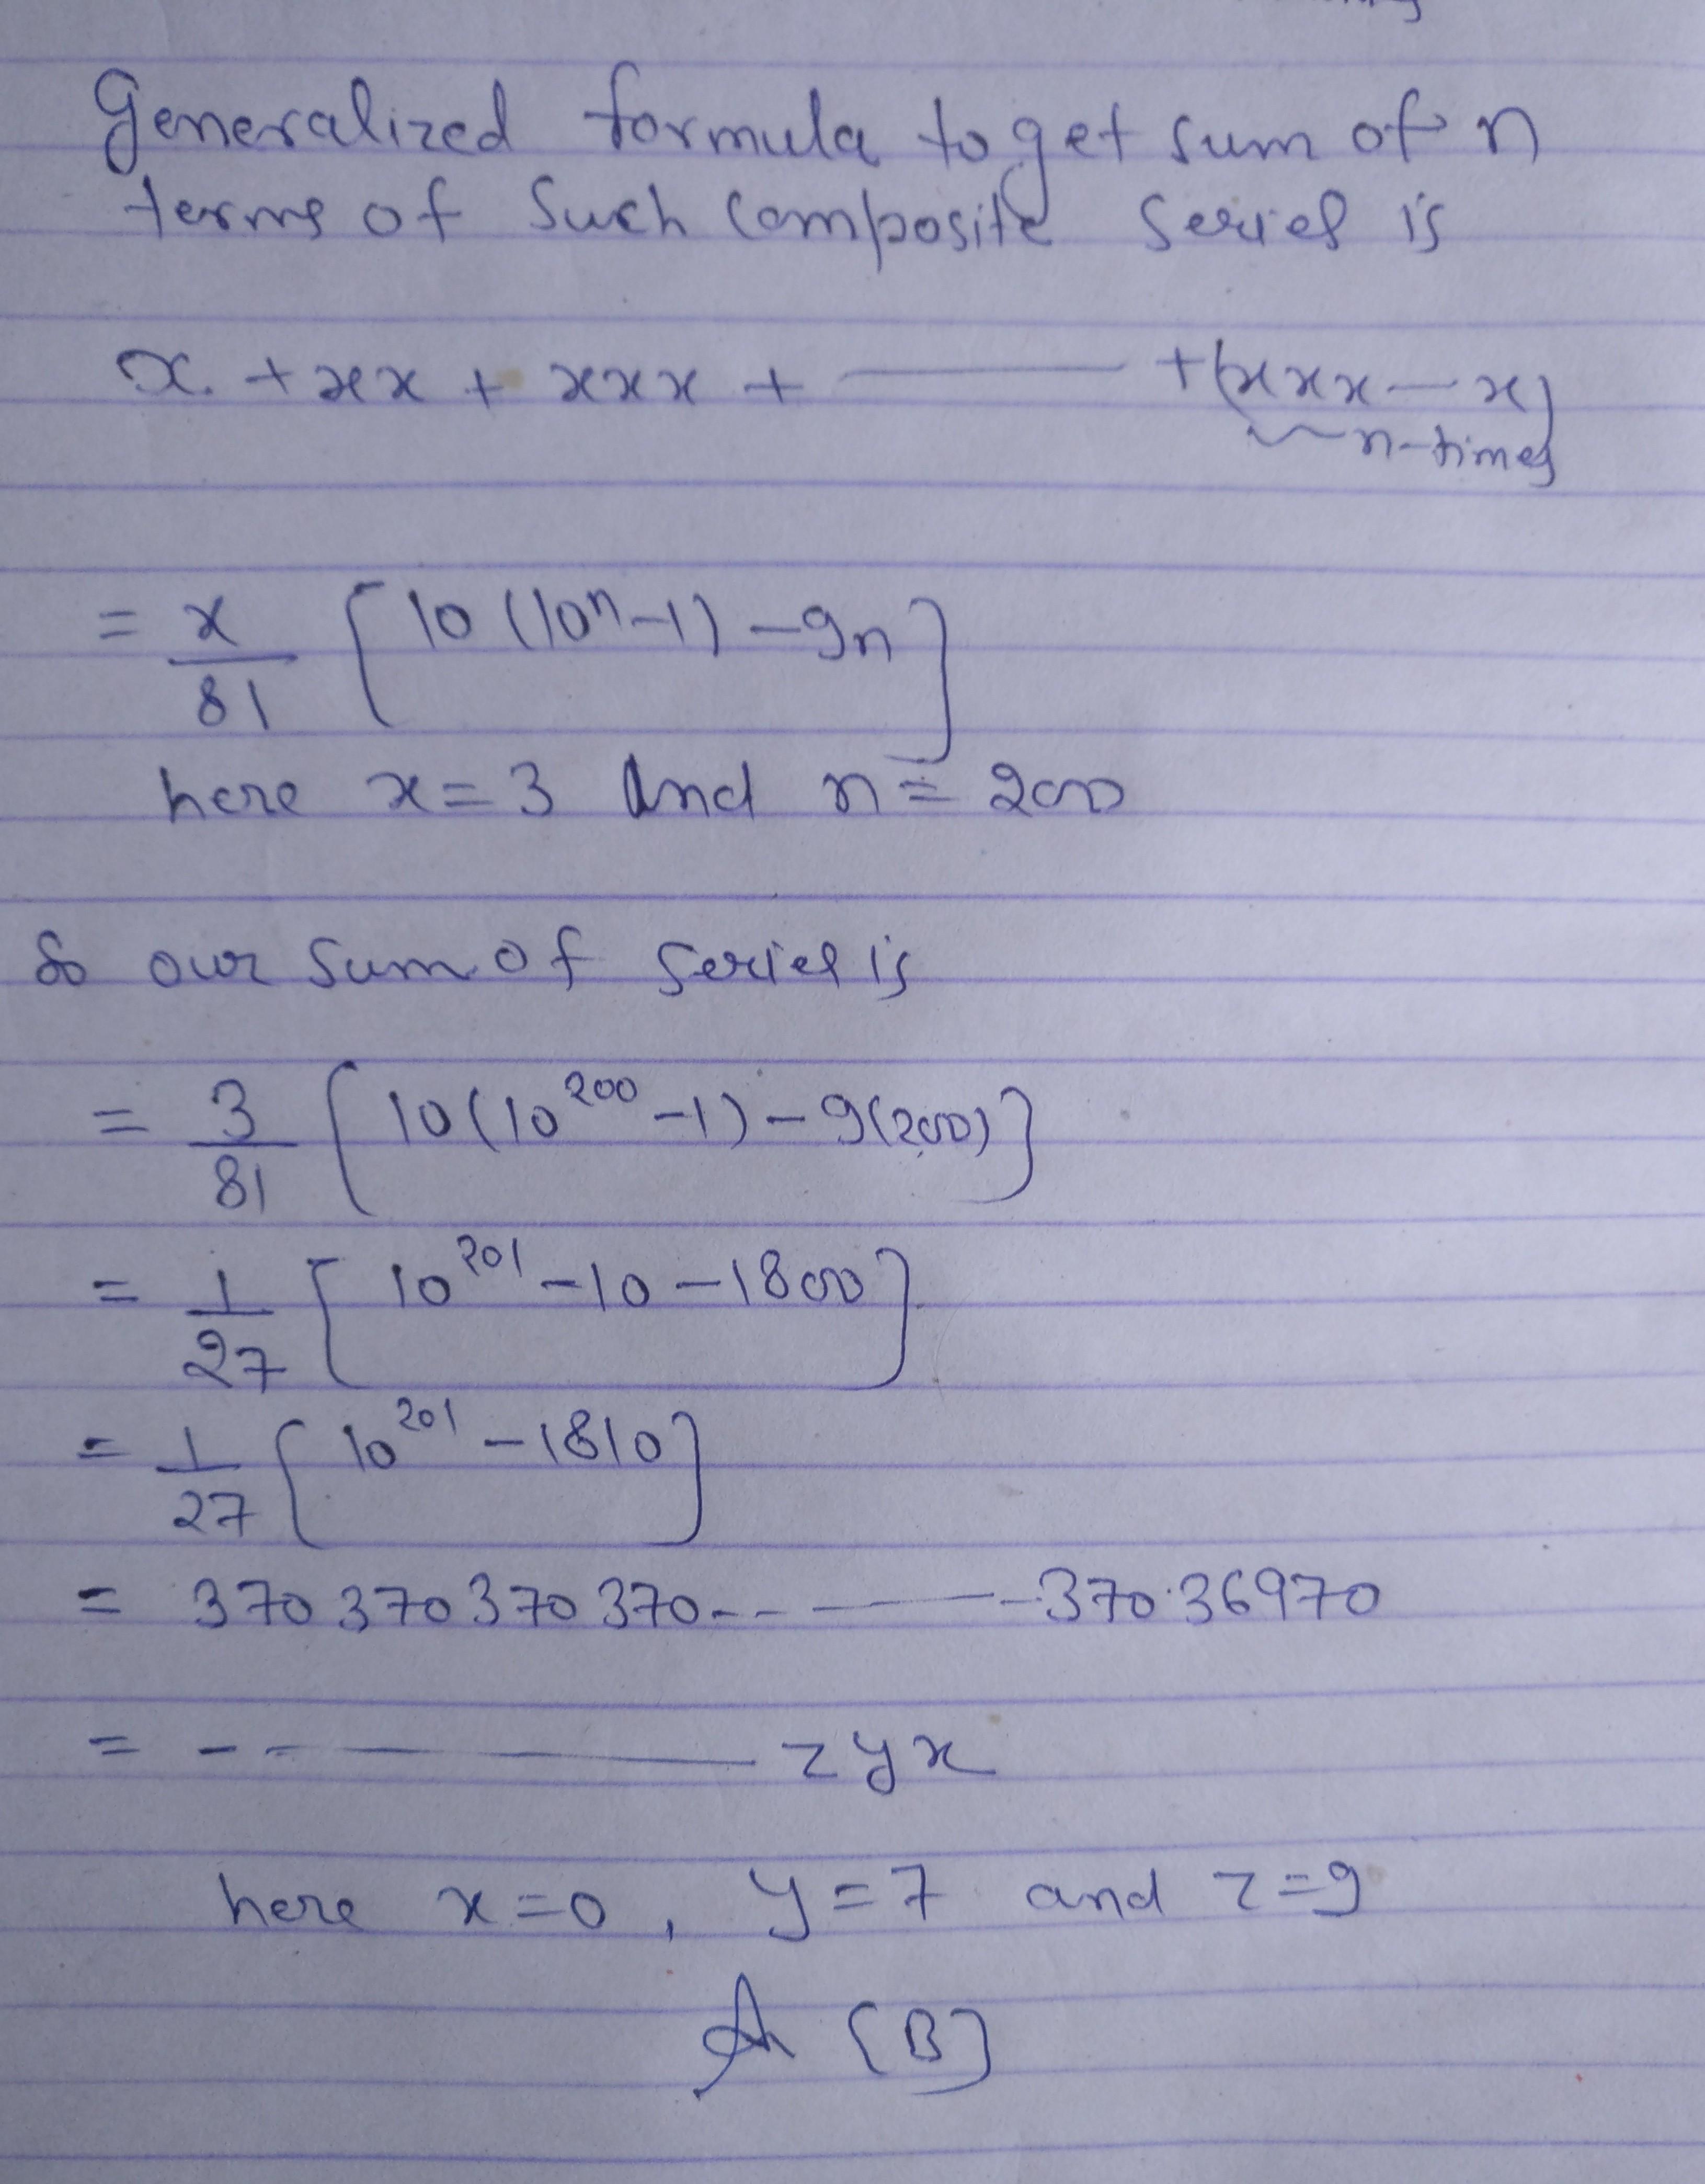 Generalized formula to get sum of n
terms of such composite series is
x + xx + xxx + ——— + (xxx — x)
n-times
= x/81 [10(10ⁿ-1) - 9n]
here x = 3 and n = 200
So our sum of series is
= 3/81 [10(10²⁰⁰-1) - 9(200)]
= 1/27 [10²⁰¹ - 10 - 1800]
= 1/27 [10²⁰¹ - 1810]
= 370 370 370 370 -- ——— -- 370 36970
= - - ——— z y x
here x = 0, y = 7 and z = 9
A (B)